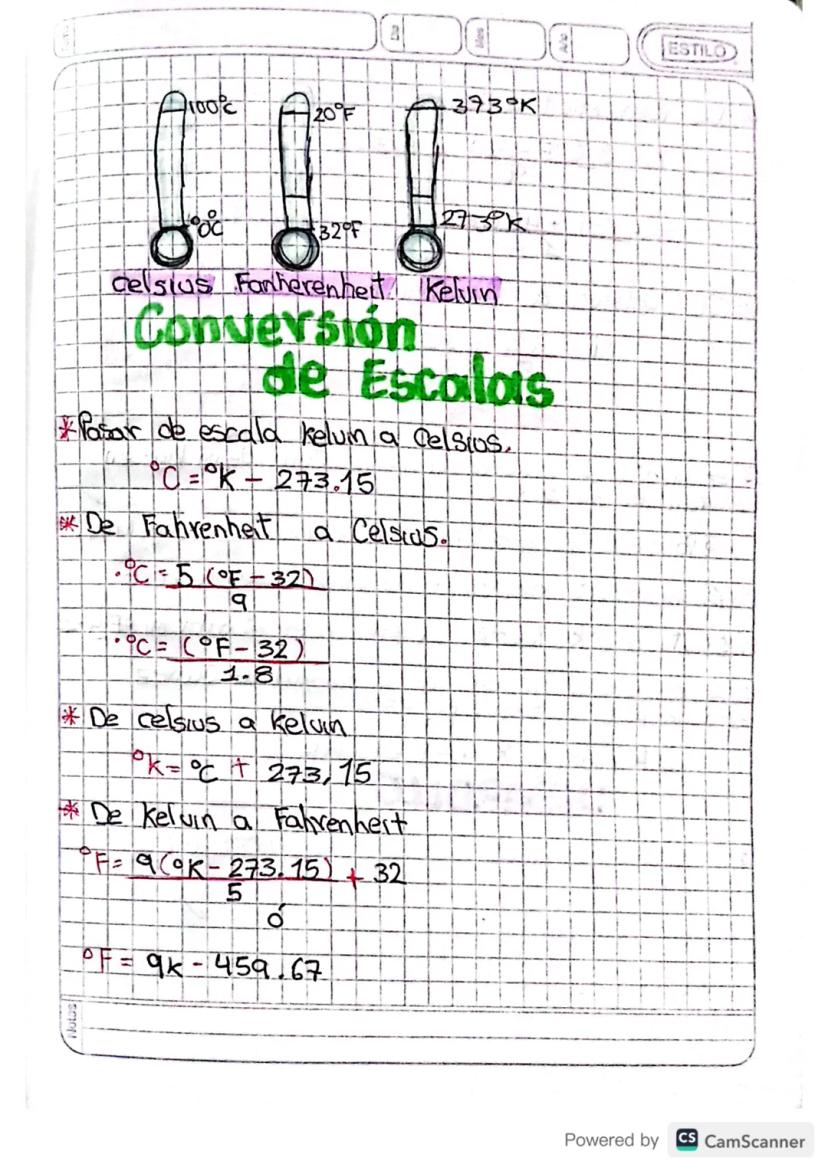 Día
Mes
Año
ESTILO
100°C
20°F
373°K
0°C
32°F
273°K
Celsius Fanherenheit Kelvin
Conversión
de Escalas
* Pasar de escala Kelvin a Celsius.
°C = °K - 273.15
* De Fahrenheit a Celsius.
. °C = 5 (°F - 32)
9
. °C = (°F - 32)
1.8
* De celsius a kelvin
°K = °C + 273,15
* De Kelvin a Fahrenheit
°F = 9(°K - 273.15) + 32
5
ó
°F = 9K - 459.67
Notas
Powered by CS CamScanner